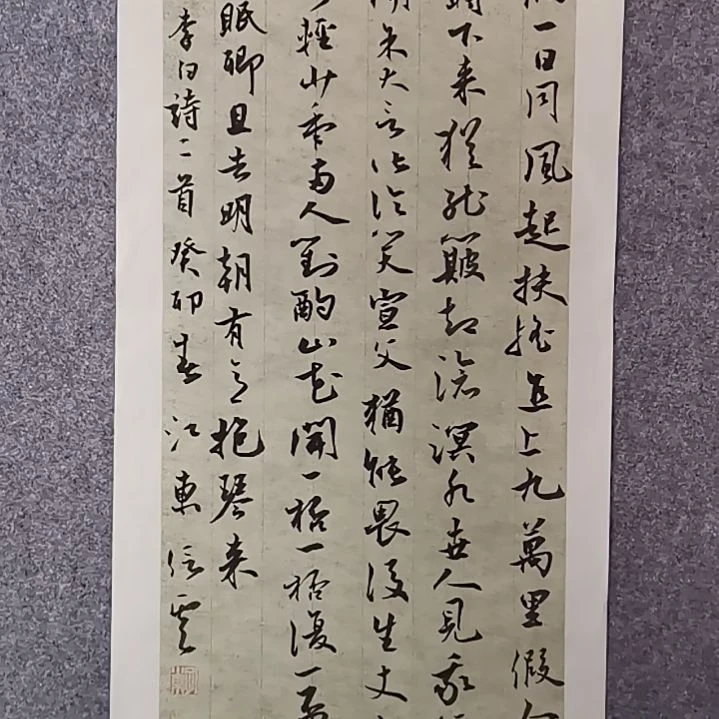 一日同風起扶摇直上九萬里假
時下来猶能簸却滄溟水世人見我
聞余大言皆冷笑宣父猶能畏後生丈
輕少年兩人對酌山花開一杯一杯復一
眠卿且去明朝有意抱琴来
李白詩二首癸卯春江東